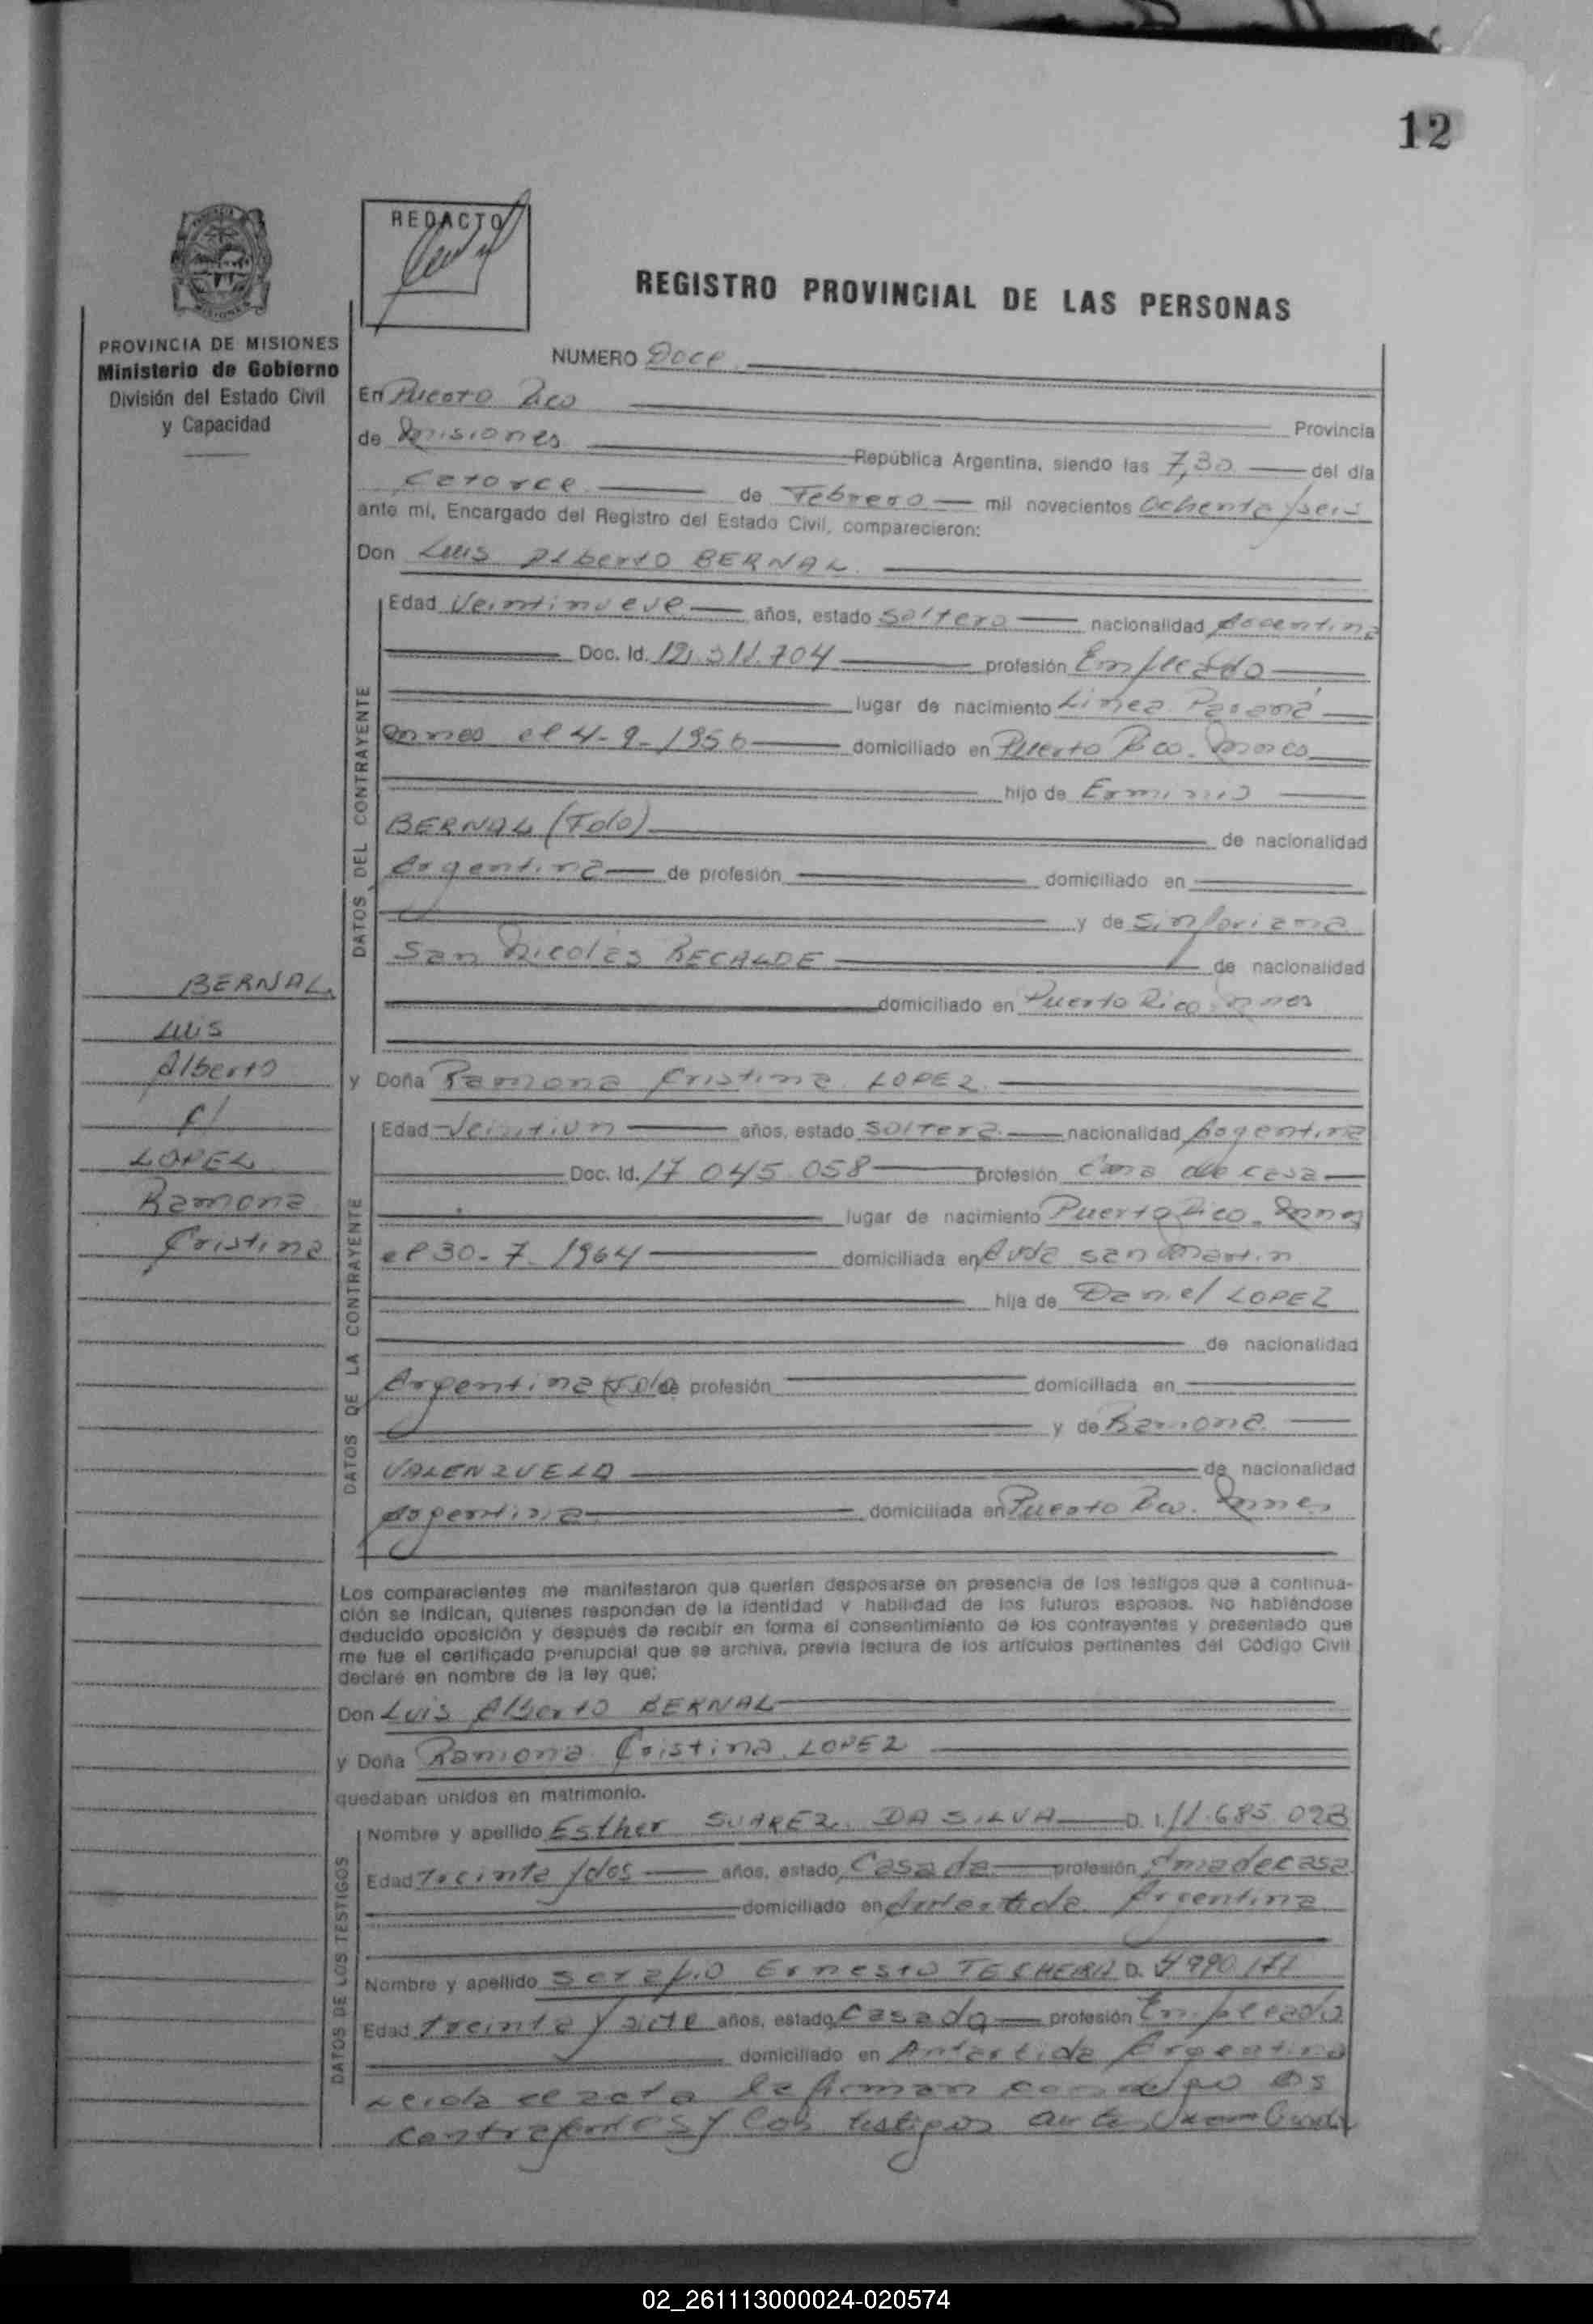 12
REDACTO
REGISTRO PROVINCIAL DE LAS PERSONAS
PROVINCIA DE MISIONES
Ministerio de Gobierno
División del Estado Civil
y Capacidad
NUMERO Doce
En Puerto Rico
Provincia
de Misiones República Argentina, siendo las 7,30 del día
Catorce de Febrero mil novecientos ochenta y seis
ante mi, Encargado del Registro del Estado Civil, comparecieron:
Don Luis Alberto BERNAL
DATOS DEL CONTRAYENTE
Edad Veintinueve años, estado soltero nacionalidad Argentina
Doc. Id. profesión Empleado
lugar de nacimiento Linea Paraná
Mnes el 4-9-1956 domiciliado en Puerto Rco. Mnes
hijo de Erminio
BERNAL (Fdo) de nacionalidad
Argentina de profesión domiciliado en
y de Sinforiana
San Nicolás RECALDE de nacionalidad
domiciliado en Puerto Rico Mnes
BERNAL
Luis
Alberto
c/
LOPEZ
Ramona
Cristina
y Doña Ramona Cristina LOPEZ
DATOS DE LA CONTRAYENTE
Edad Veintiun años, estado soltera nacionalidad Argentina
Doc. Id. 17 045 058 profesión ama de casa
lugar de nacimiento Puerto Rico. Mnes
el 30-7-1964 domiciliada en Avda san Martin
hija de Daniel LOPEZ
de nacionalidad
Argentina (Fdo) de profesión domiciliada en
y de Ramona
VALENZUELA de nacionalidad
Argentina domiciliada en Puerto Rco. Mnes
Los comparecientes me manifestaron que querían desposarse en presencia de los testigos que a continua-
ción se indican, quienes responden de la identidad y habilidad de los futuros esposos. No habiéndose
deducido oposición y después de recibir en forma el consentimiento de los contrayentes y presentado que
me fue el certificado prenupcial que se archiva, previa lectura de los artículos pertinentes del Código Civil
declaré en nombre de la ley que:
Don Luis Alberto BERNAL
y Doña Ramona Cristina LOPEZ
quedaban unidos en matrimonio.
DATOS DE LOS TESTIGOS
Nombre y apellido Esther SUAREZ DA SILVA D. I. 11.685.023
Edad treinta y dos años, estado Casada profesión Ama de casa
domiciliado en Antartida Argentina
Nombre y apellido Serapio Ernesto TECHEIRA D.
Edad treinta y siete años, estado Casado profesión Empleado
domiciliado en Antartida Argentina
Leida el acta la firman conmigo los
contrayentes y los testigos
02_261113000024-020574